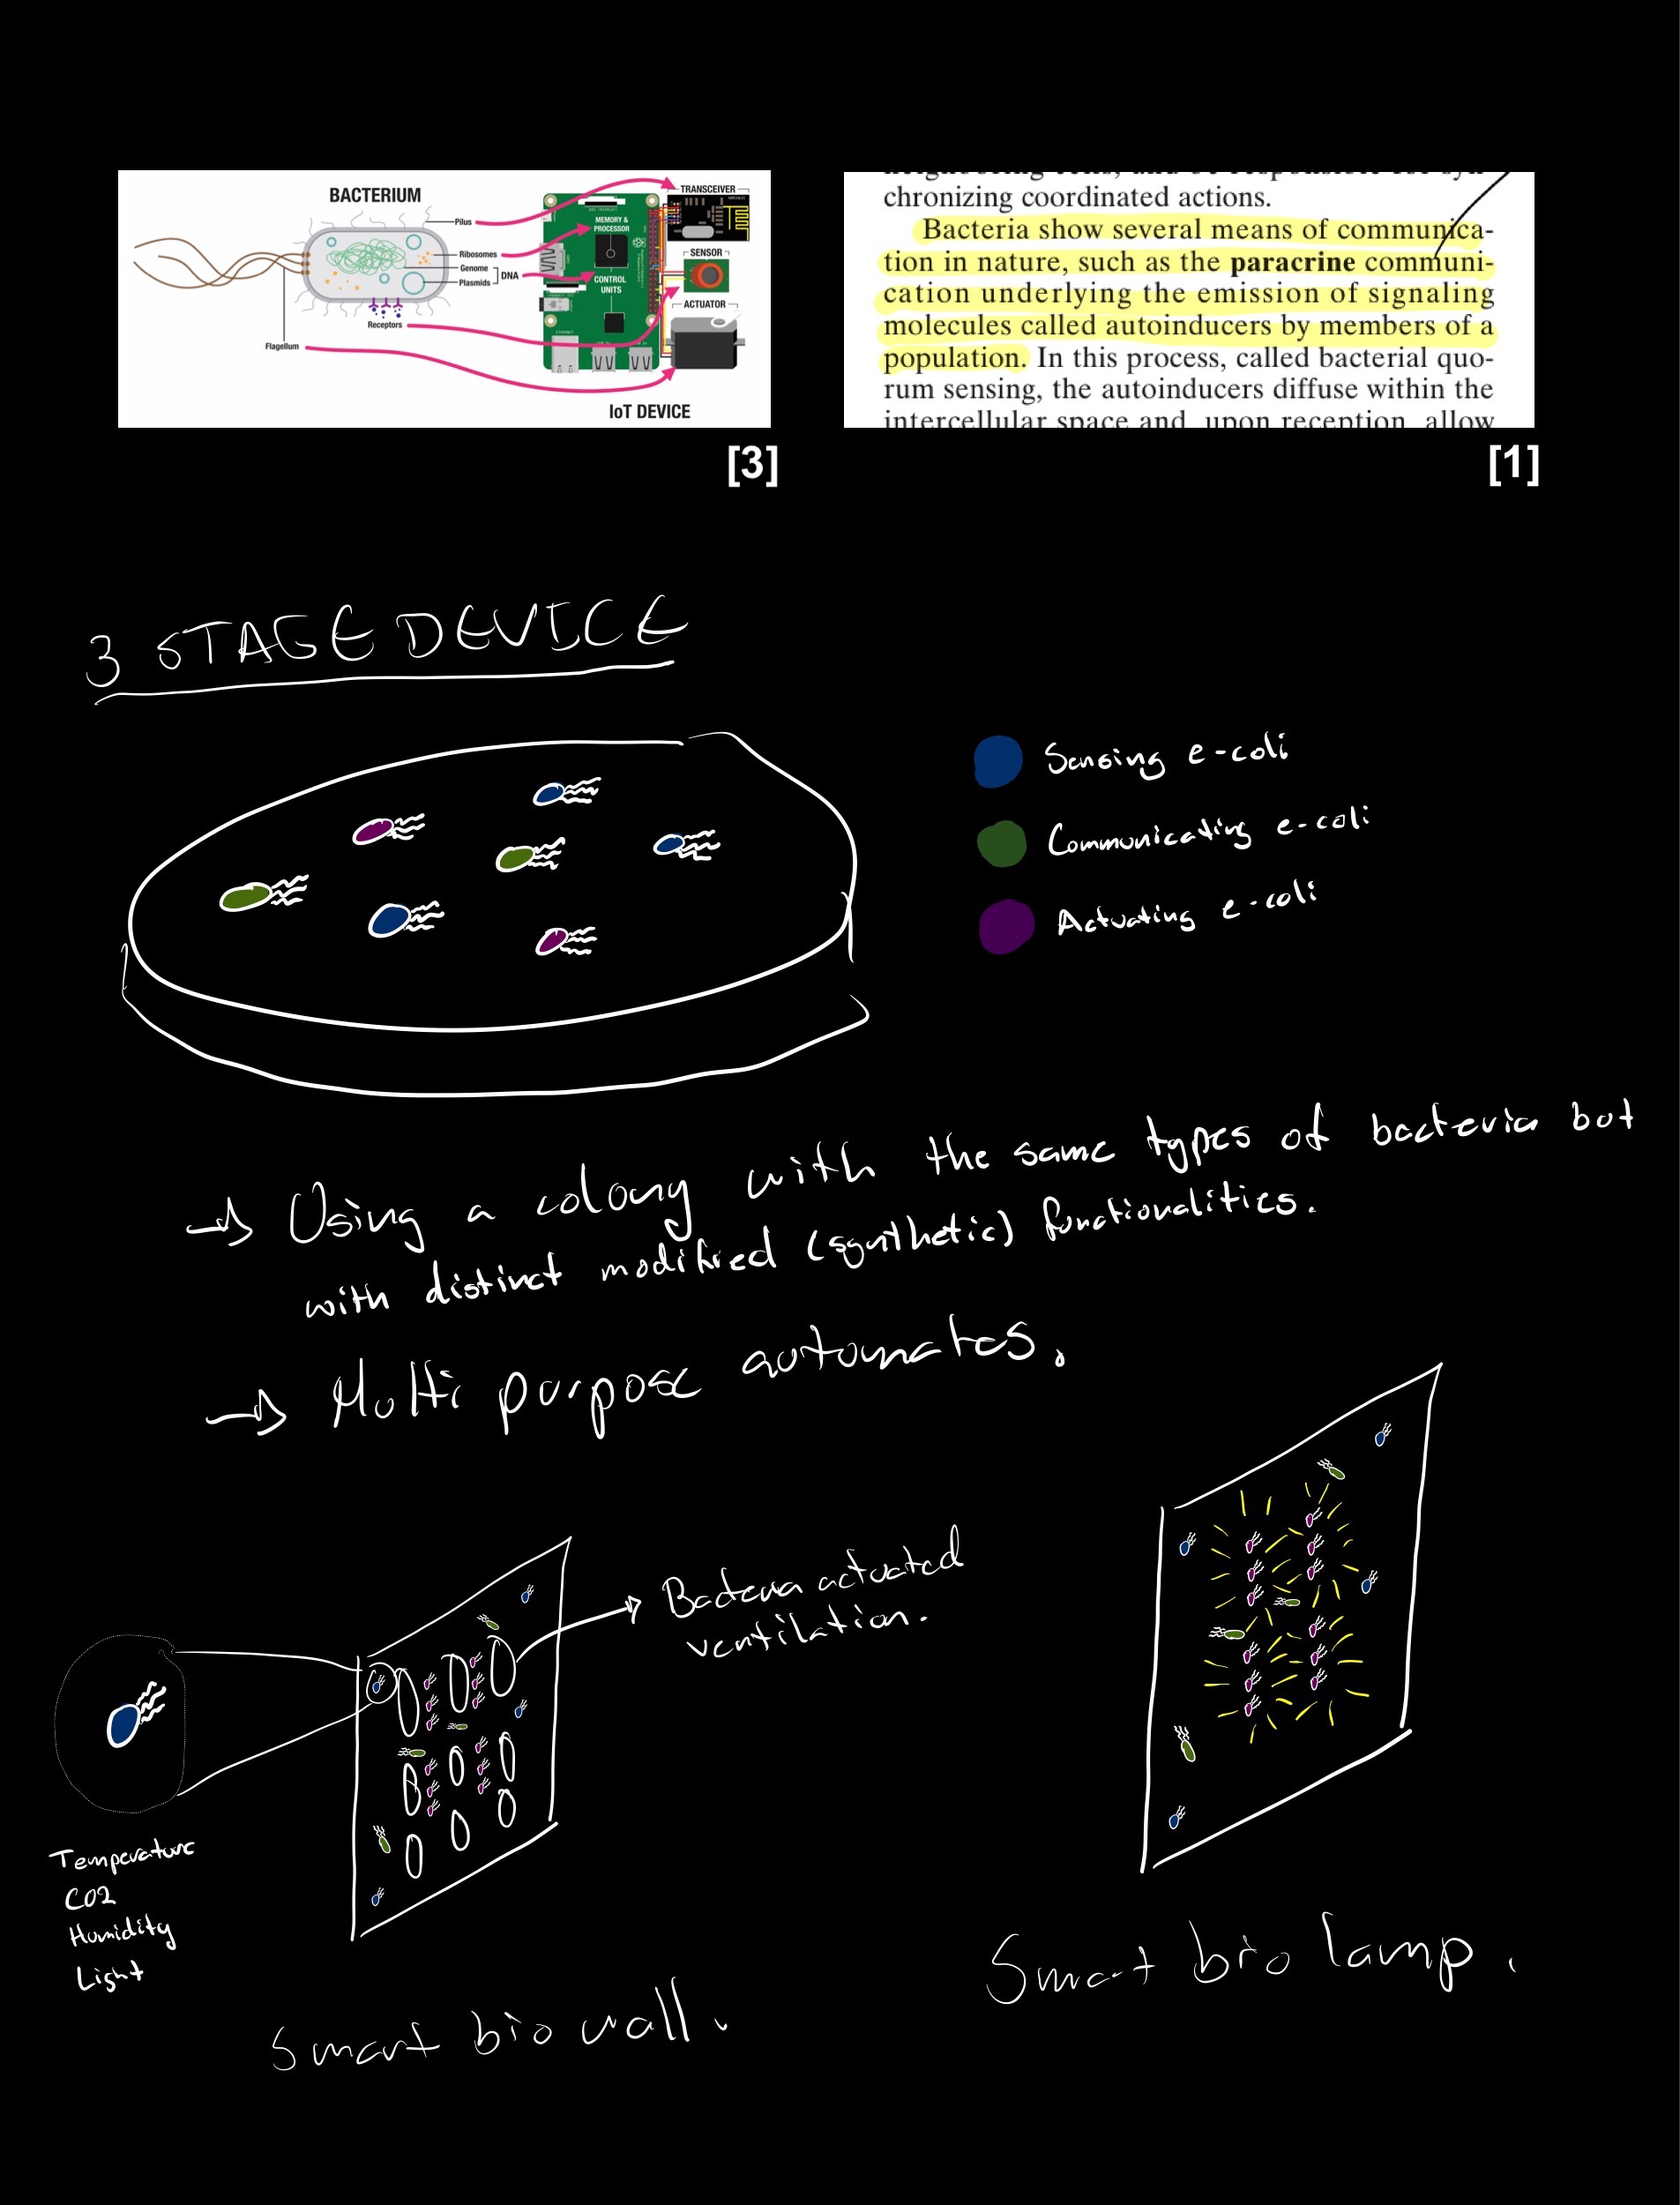 BACTERIUM
Pilus
Ribosomes
Genome
Plasmids
DNA
Receptors
Flagellum
MEMORY &
PROCESSOR
CONTROL
UNITS
TRANSCEIVER
SENSOR
ACTUATOR
IoT DEVICE
[3]
neighboring cells, and be responsible for syn-
chronizing coordinated actions.
Bacteria show several means of communica-
tion in nature, such as the paracrine communi-
cation underlying the emission of signaling
molecules called autoinducers by members of a
population. In this process, called bacterial quo-
rum sensing, the autoinducers diffuse within the
intercellular space and, upon reception, allow
[1]
3 STAGE DEVICE
Sensing e-coli
Communicating e-coli
Actuating e-coli
→ Using a colony with the same types of bacteria but
with distinct modified (synthetic) functionalities.
→ Multi purpose automates.
Bacteria actuated
ventilation.
Temperature
CO2
Humidity
Light
Smart bio wall.
Smart bio lamp.